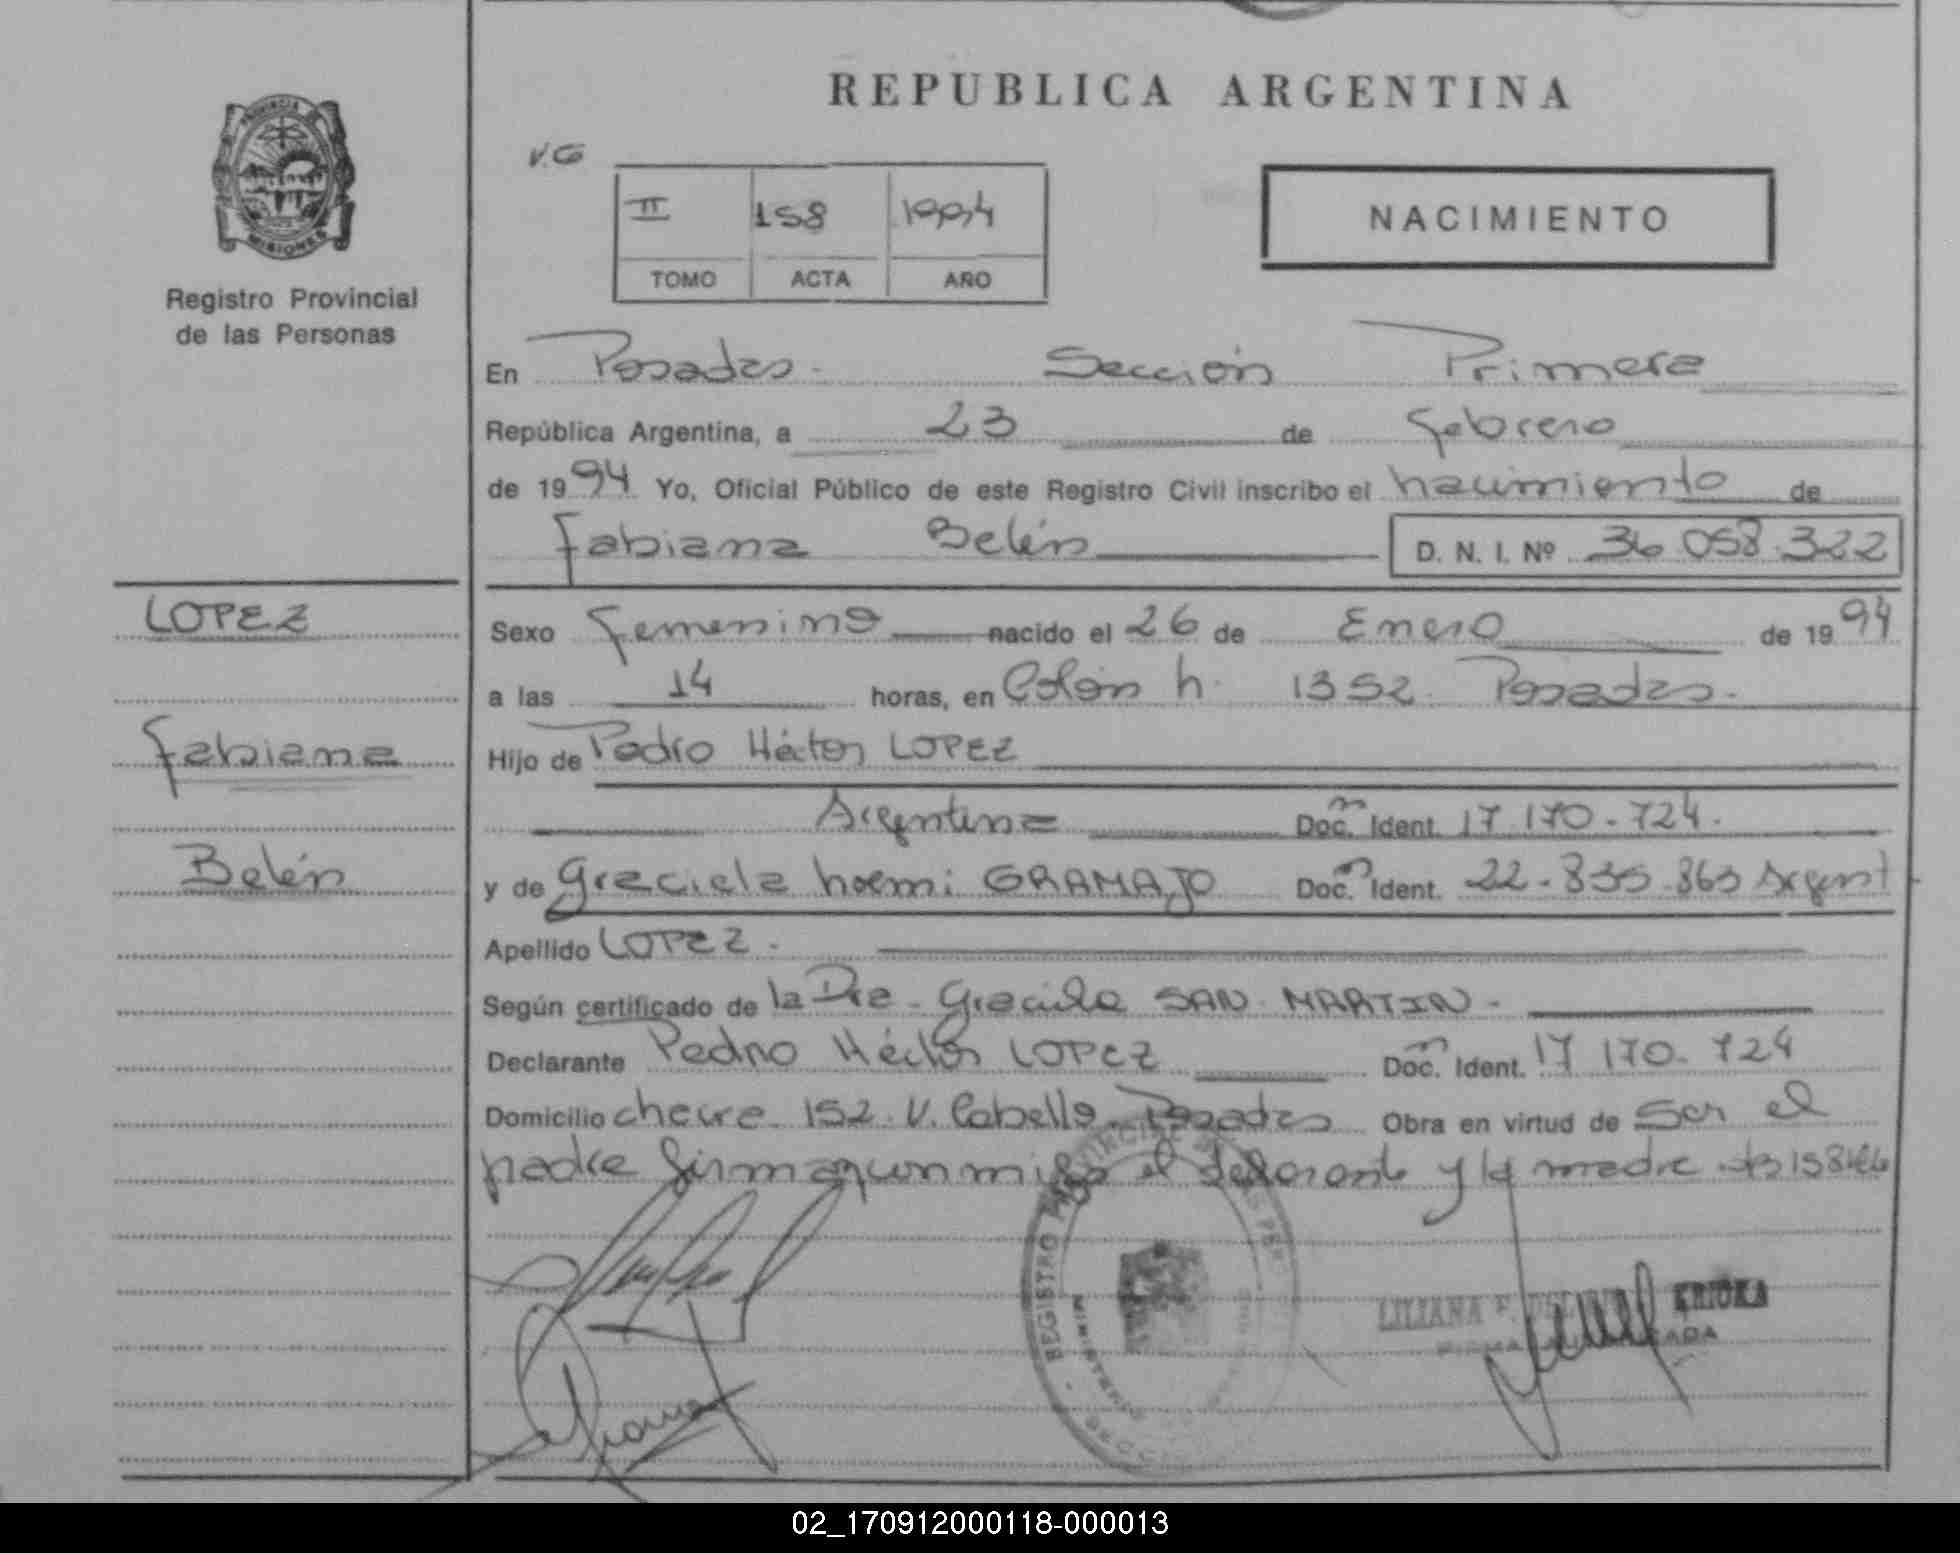 REPUBLICA ARGENTINA
PROVINCIA
MISIONES
Registro Provincial
de las Personas
V.G
II 158 1994
TOMO ACTA AÑO
NACIMIENTO
En Posadas. Sección Primera
República Argentina, a 23 de febrero
de 1994 Yo, Oficial Público de este Registro Civil inscribo el nacimiento de
Fabiana Belén D. N. I. Nº 36.058.322
LOPEZ
Fabiana
Belén
Sexo femenino nacido el 26 de Enero de 1994
a las 14 horas, en Colón n. 1352. Posadas.
Hijo de Pedro Héctor LOPEZ
Argentina Doc. Ident. 17.170.724.
y de Graciela noemi GRAMAJO Doc. Ident. 22.835.863 Argent
Apellido LOPEZ.
Según certificado de la Dra. Graciela SAN MARTIN.
Declarante Pedro Héctor LOPEZ Doc. Ident. 17.170.724
Domicilio 152. V. Cabello. Posadas Obra en virtud de ser el
padre firman el declarante y la madre
REGISTRO
MINISTERIO
LILIANA F.
02_170912000118-000013